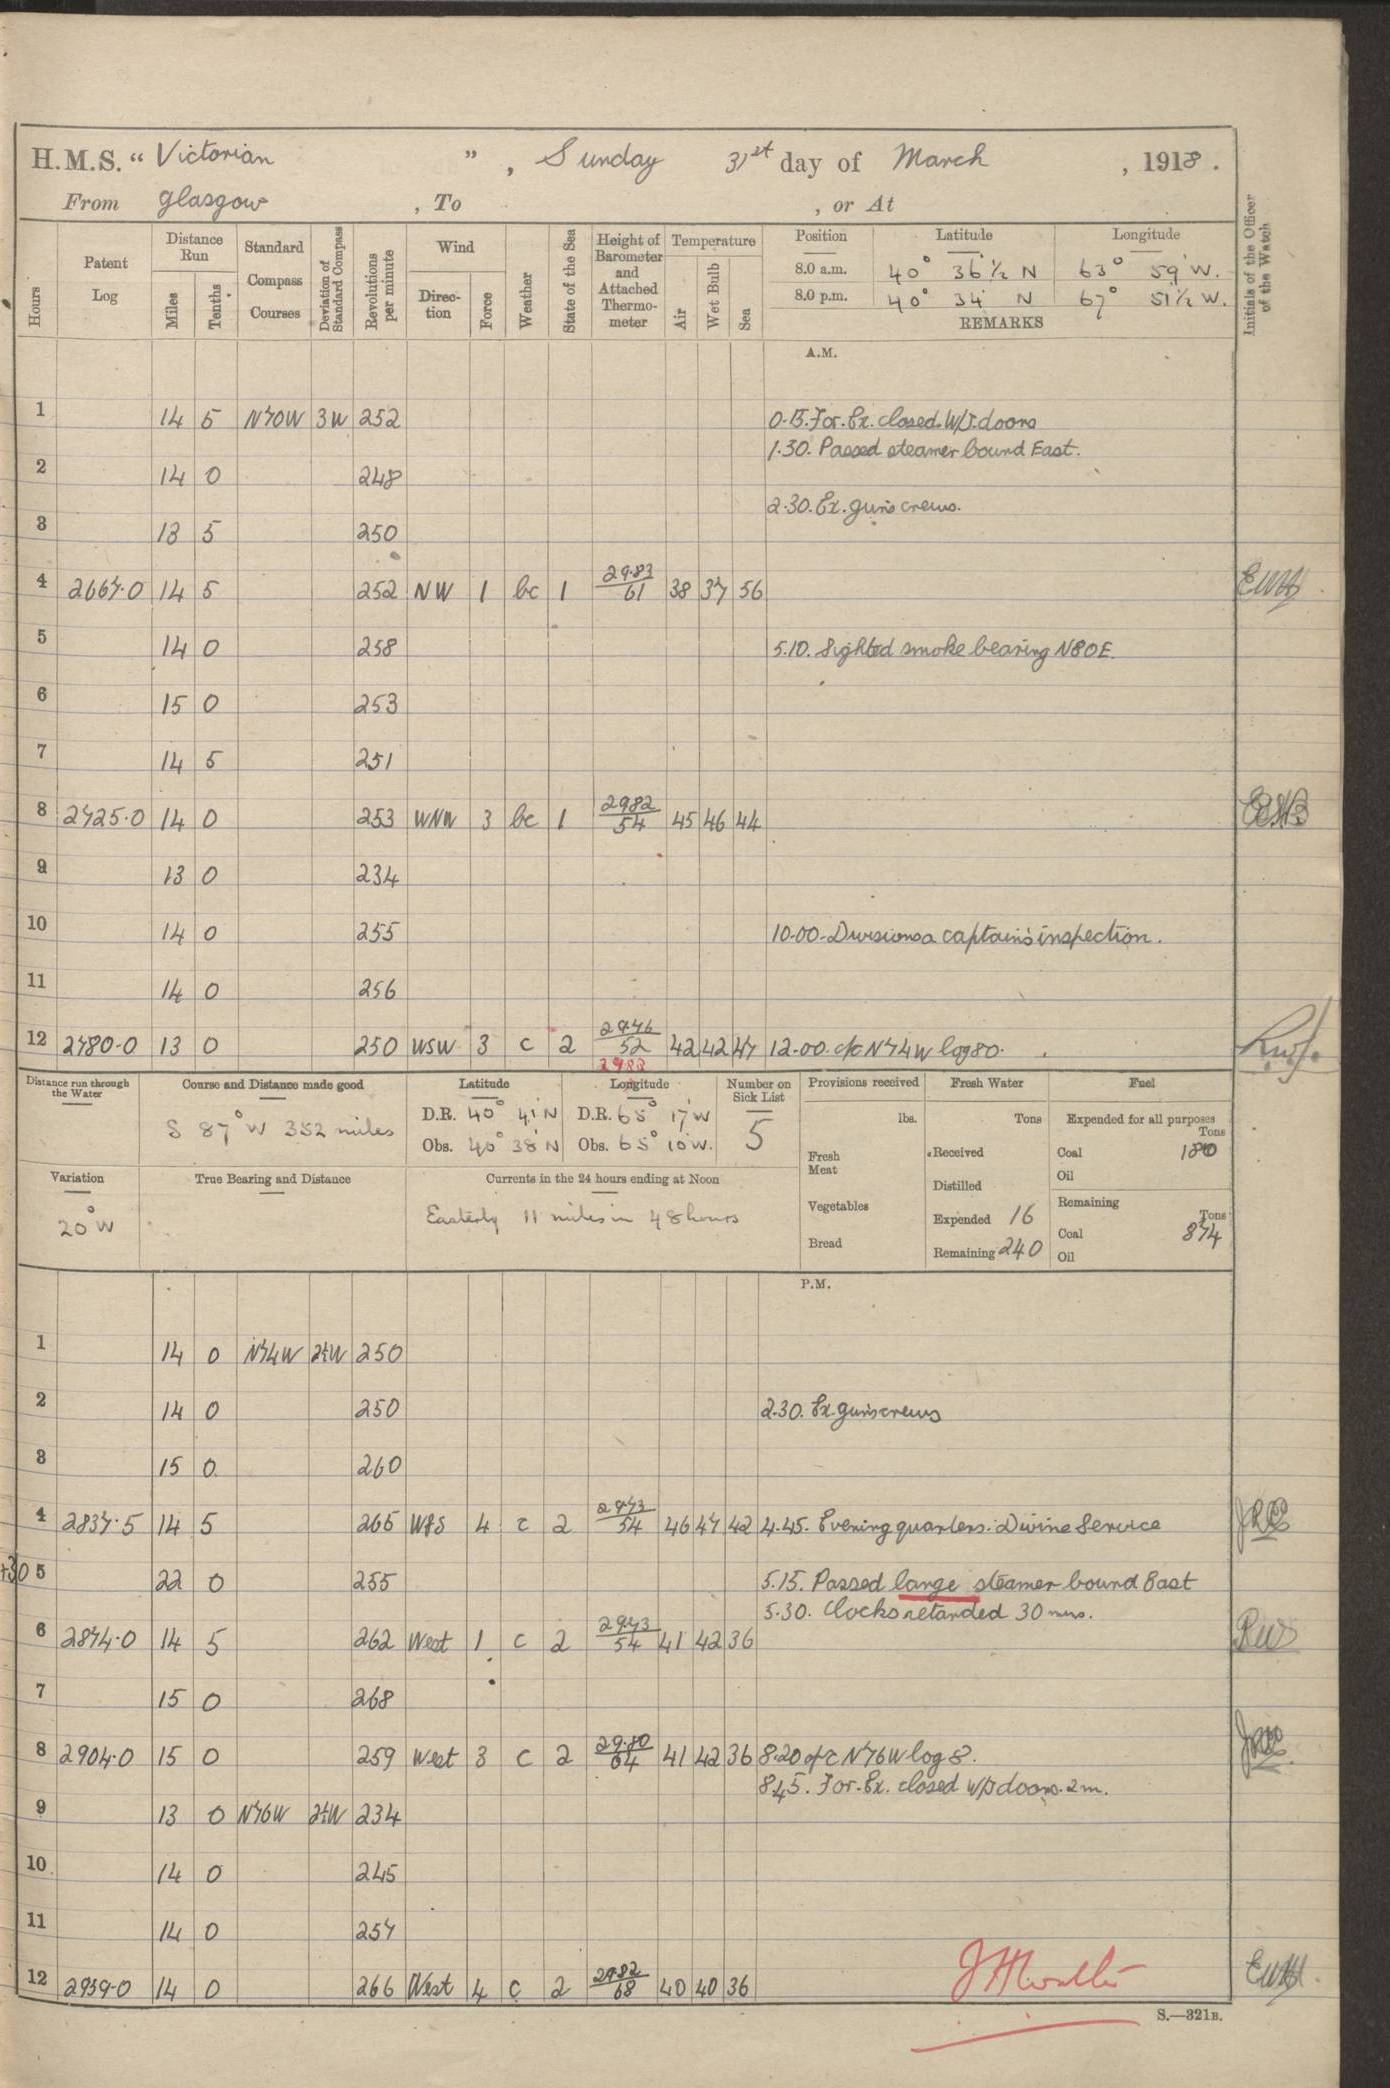 H.M.S. “ Victorian ” , Sunday 31st day of March , 1918 .
From Glasgow , To , or At
Initials of the Officer of the Watch
Hours
Patent Log
Distance Run
Miles
Tenths
Standard Compass Courses
Deviation of Standard Compass
Revolutions per minute
Wind
Direction
Force
Weather
State of the Sea
Height of Barometer and Attached Thermometer
Temperature
Air
Wet Bulb
Sea
Position Latitude Longitude
8.0 a.m. 40° 36' ½ N 63° 59' W.
8.0 p.m. 40° 34' N 67° 51½ W.
REMARKS
A.M.
1 14 5 N70W 3W 252 0.15. For. Ex. closed W/T. doors
1.30. Passed steamer bound East.
2 14 0 248
2.30. Ex. guns crews.
3 13 5 250
4 2667.0 14 5 252 NW 1 bc 1 29.83/61 38 37 56 EWH
5 14 0 258 5.10. Sighted smoke bearing N80E.
6 15 0 253
7 14 5 251
8 2725.0 14 0 253 WNW 3 bc 1 2982/54 45 46 44
9 13 0 234
10 14 0 255 10.00. Divisions a captain's inspection.
11 14 0 256
12 2780.0 13 0 250 WSW 3 c 2 2976/52 42 42 47 12.00. c/c N74W log 80.
2983
Distance run through the Water
Course and Distance made good
S 87° W 352 miles
Latitude
D.R. 40° 41' N
Obs. 40° 38' N
Longitude
D.R. 65° 17' W
Obs. 65° 10' W.
Number on Sick List
5
Provisions received
lbs.
Fresh Meat
Vegetables
Bread
Fresh Water
Tons
Received
Distilled
Expended 16
Remaining 240
Fuel
Expended for all purposes
Tons
Coal 180
Oil
Remaining
Tons
Coal 874
Oil
Variation
20° W
True Bearing and Distance
Currents in the 24 hours ending at Noon
Easterly 11 miles in 48 hours
P.M.
1 14 0 N74W 2½W 250
2 14 0 250 2.30. Ex. guns crews
3 15 0 260
4 2837.5 14 5 265 W&S 4 c 2 2973/54 46 47 42 4.45. Evening quarters. Divine Service
+30 5 22 0 255 5.15. Passed large steamer bound East
5.30. Clocks retarded 30 mins.
6 2874.0 14 5 262 West 1 c 2 2973/54 41 42 36
7 15 0 268
8 2904.0 15 0 259 West 3 c 2 29.80/64 41 42 36 8.20 c/c N76W log 8.
8.45. For. Ex. closed W/T doors. 2m.
9 13 0 N76W 2½W 234
10 14 0 245
11 14 0 257
12 2959.0 14 0 266 West 4 c 2 2982/68 40 40 36 EWH
S.—321B.